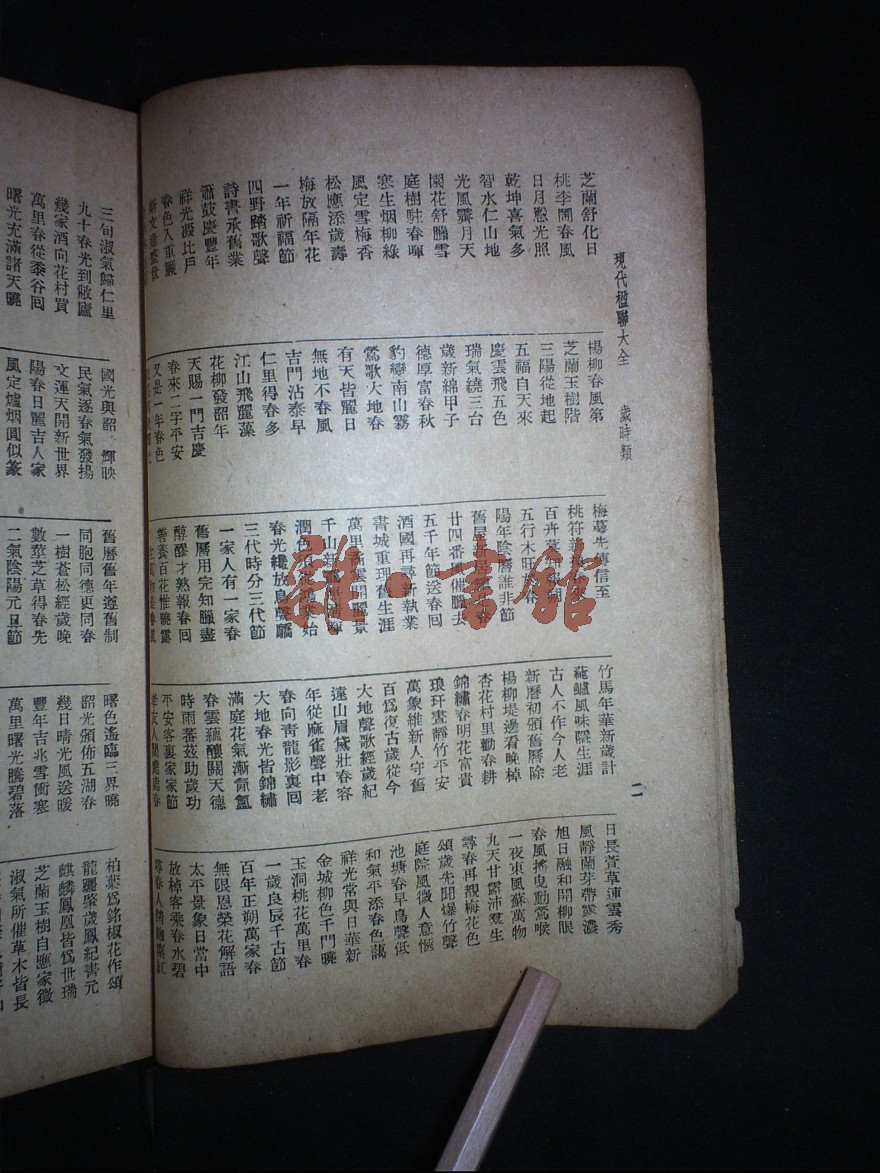 現代楹聯大全 歲時類
二
芝蘭舒化日
桃李鬧春風
日月照
乾坤喜氣多
智水仁山地
光風霽月天
園花舒臘雪
庭樹駐春暉
寒生烟柳綠
風定雪梅香
松應添歲壽
梅放隔年花
一年祈福節
四野踏歌聲
詩書承舊業
簫鼓慶豐年
祥光滬比戶
春色入重
楊柳春風第
芝蘭玉樹階
三陽從地起
五福自天來
慶雲飛五色
瑞氣繞三台
歲新綿甲子
德厚富春秋
豹變南山霧
鶯歌大地春
有天皆麗日
無地不春風
吉門沾泰早
仁里得春多
江山飛麗藻
花柳發韶年
天賜一門吉慶
春來二字平安
又是一年春色
梅蕚先傳信至
桃符
百卉
五行木旺
陽年陰曆誰非節
舊屋
廿四番風催臘去
五千年節送春回
酒國再尋新執業
書城重理舊生涯
萬里開麗景
千山新
潤色
春光纔放鳥聲
三代時分三代節
一家人有一家春
舊曆用完知臘盡
醇醪才熟報春回
善養百花惟曉露
竹馬年華新歲計
蓴鱸風味隱生涯
古人不作今人老
新曆初頒舊曆除
楊柳堤邊看晚棹
杏花村里勸春耕
錦繡春明花富貴
琅玕晝靜竹平安
萬象維新人守舊
百爲復古歲從今
大地聲歌經歲紀
遠山眉黛壯春容
年從麻雀聲中老
春向青龍影裏回
大地春光皆錦繡
滿庭花氣漸氤氳
春雲蘊釀關天德
時雨蕃茲助歲功
平安客裏家家節
日長萱草連雲秀
風靜蘭芽帶露濃
旭日融和開柳眼
春風搖曳動鶯喉
一夜東風蘇萬物
九天甘露沛羣生
尋春再覩梅花色
頌歲先聞爆竹聲
庭院風微人意愜
池塘春早鳥聲低
和氣平添春色藹
祥光常與日華新
金城柳色千門曉
玉洞桃花萬里春
一歲良辰千古節
百年正朔萬家春
無限恩榮花解語
太平景象日當中
放棹客乘春水碧
三旬淑氣歸仁里
九十春光到敝廬
幾家酒向花村買
萬里春從黍谷回
曙光充滿諸天曉
國光與韶 輝映
民氣逐春氣發揚
文運天開新世界
陽春日麗吉人家
風定爐烟圓似篆
舊曆舊年遵舊制
同胞同德更同春
一樹蒼松經歲晚
數莖芝草得春先
二氣陰陽元旦節
曙色遙臨三界曉
韶光頒佈五湖春
幾日晴光風送暖
豐年吉兆雪衝塞
萬里曙光騰碧落
柏葉爲銘椒花作頌
龍躔肇歲鳳紀書元
麒麟鳳凰皆爲世瑞
芝蘭玉樹自應家徵
淑氣所催草木皆長
雜·書館